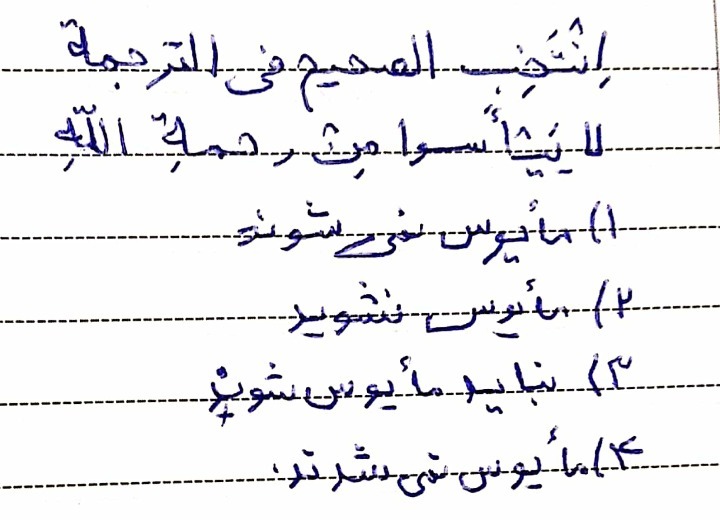 اِنْتَخِبِ الصحیح فی الترجمة
لا یَیْأَسوا مِنْ رحمةِ اللّهِ
۱) مأیوس نمی شوند
۲) مأیوس نشوید
۳) نباید مأیوس شوند
۴) مأیوس نمی شدند.